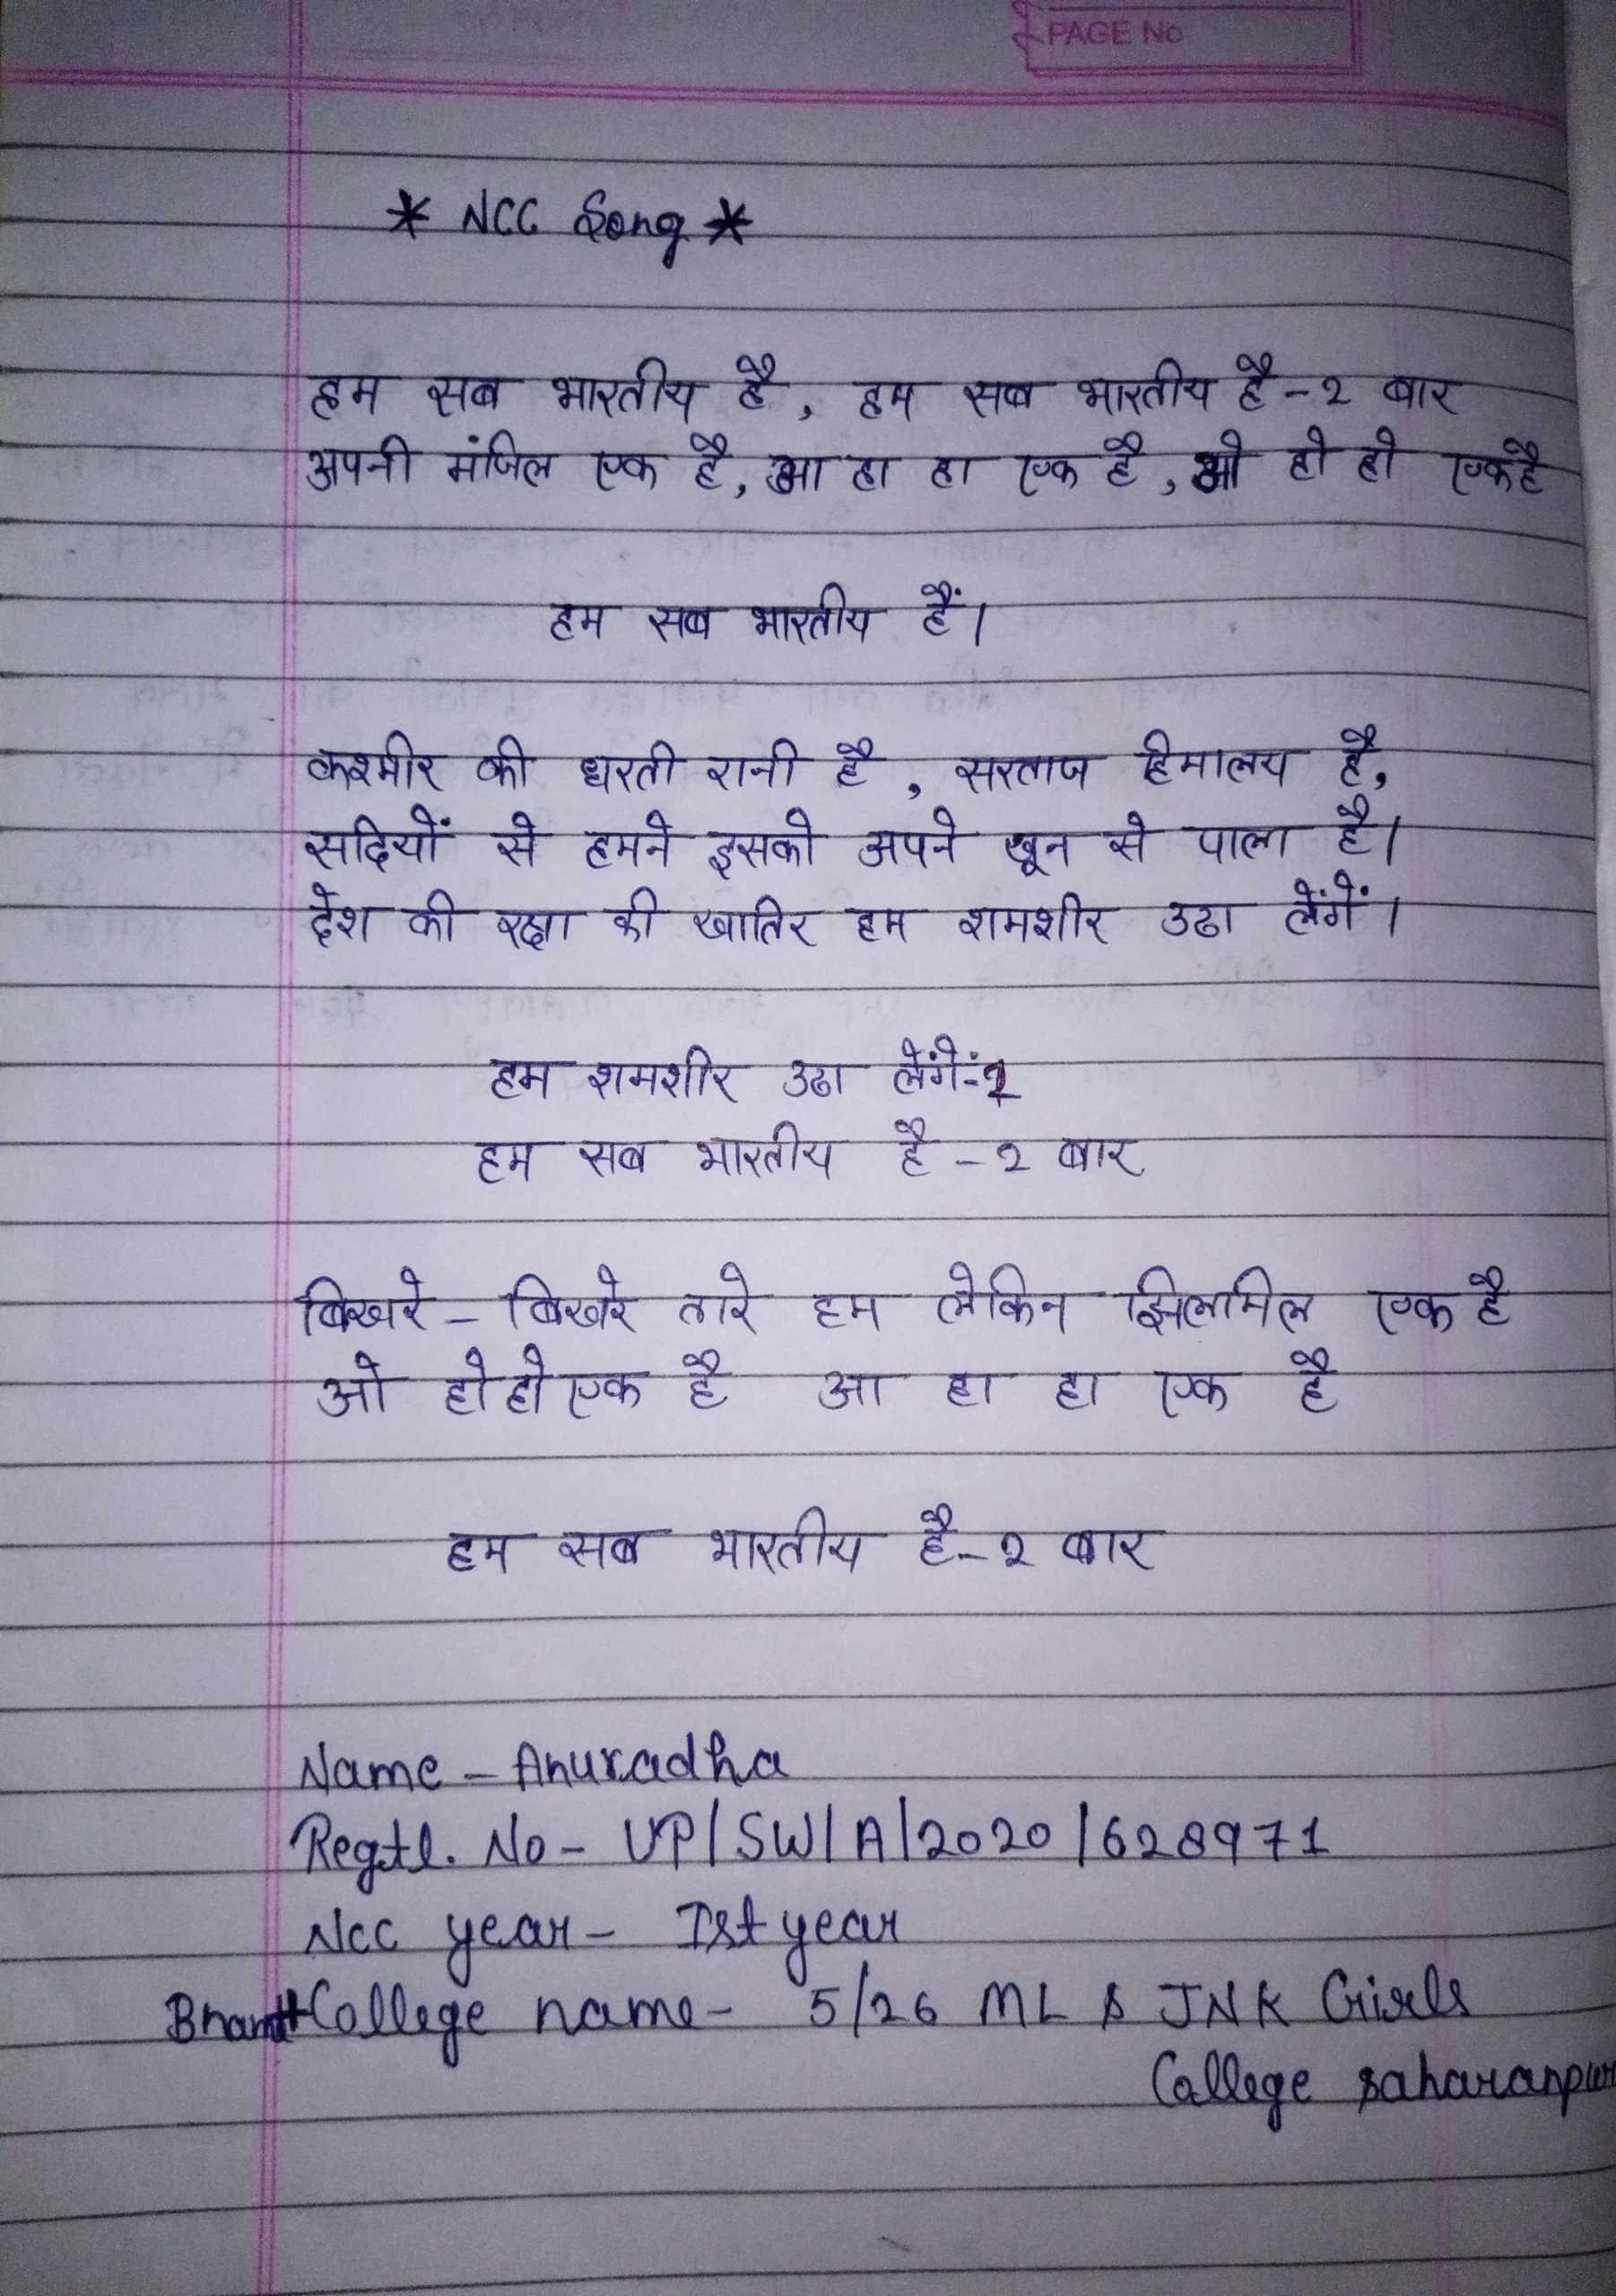 PAGE No
* NCC Song *
हम सब भारतीय है, हम सब भारतीय है - 2 बार
अपनी मंजिल एक है, आ हा हा एक है, ओ हो हो एक है
हम सब भारतीय हैं।
कश्मीर की धरती रानी है, सरताज हिमालय है,
सदियों से हमने इसको अपने खून से पाला है।
देश की रक्षा की खातिर हम शमशीर उठा लेंगें।
हम शमशीर उठा लेंगें-2
हम सब भारतीय है - 2 बार
बिखरे - बिखरे तारे हम लेकिन झिलमिल एक है
ओ हो हो एक है आ हा हा एक है
हम सब भारतीय है - 2 बार
Name - Anuradha
Regtl. No - UP/SW/A/2020/628971
NCC year - Ist year
College name - 5/26 ML & JNK Girls
College Saharanpur